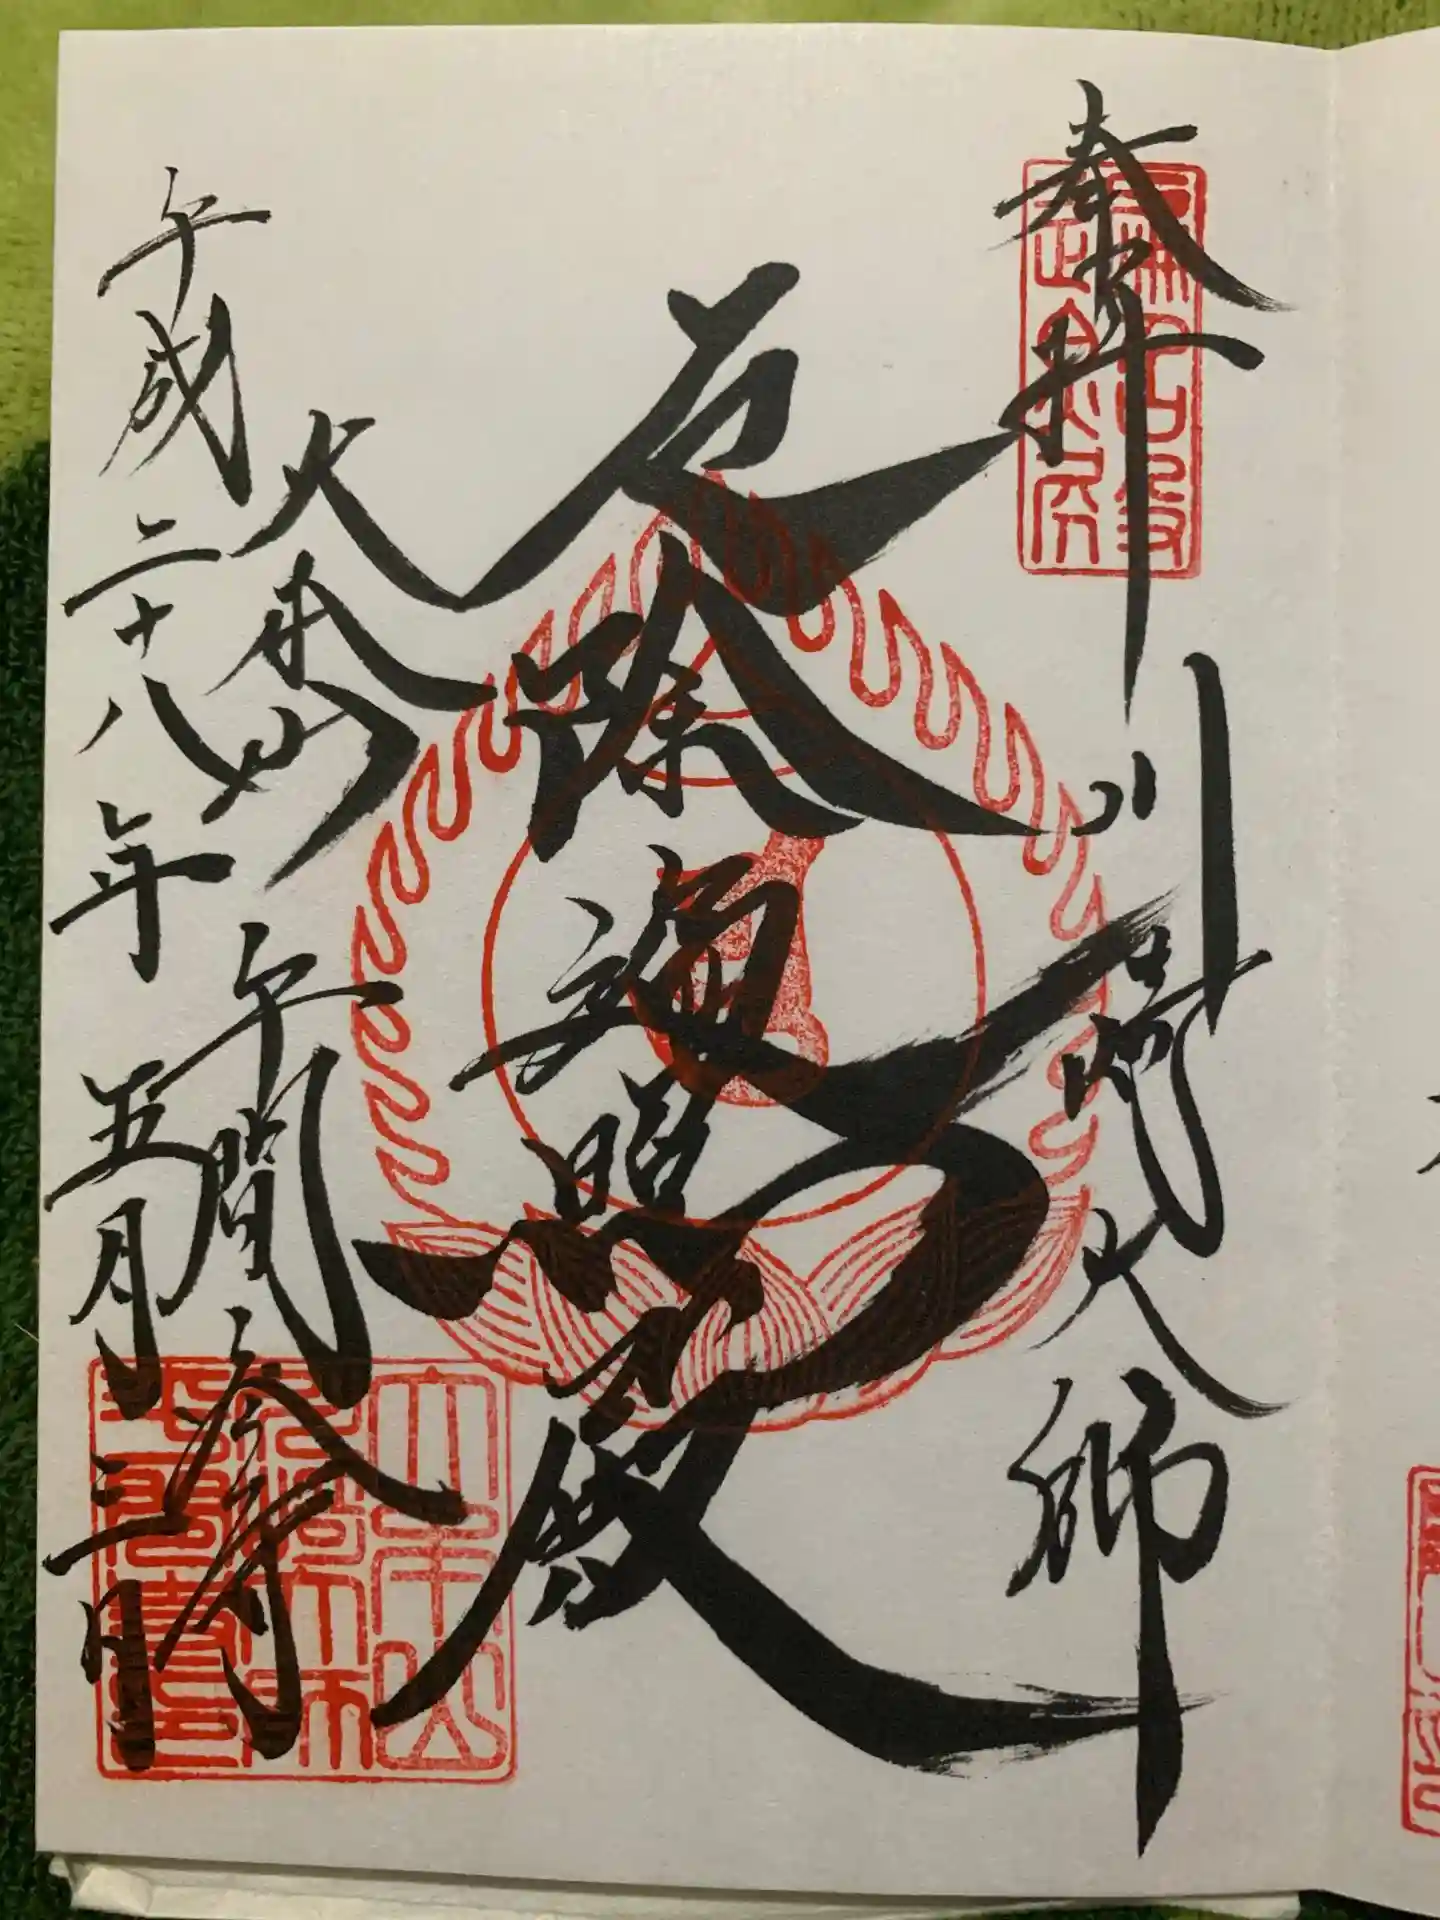 奉拝　川崎大師
厄除遍照殿
大本山　平間寺
平成二十八年五月三日